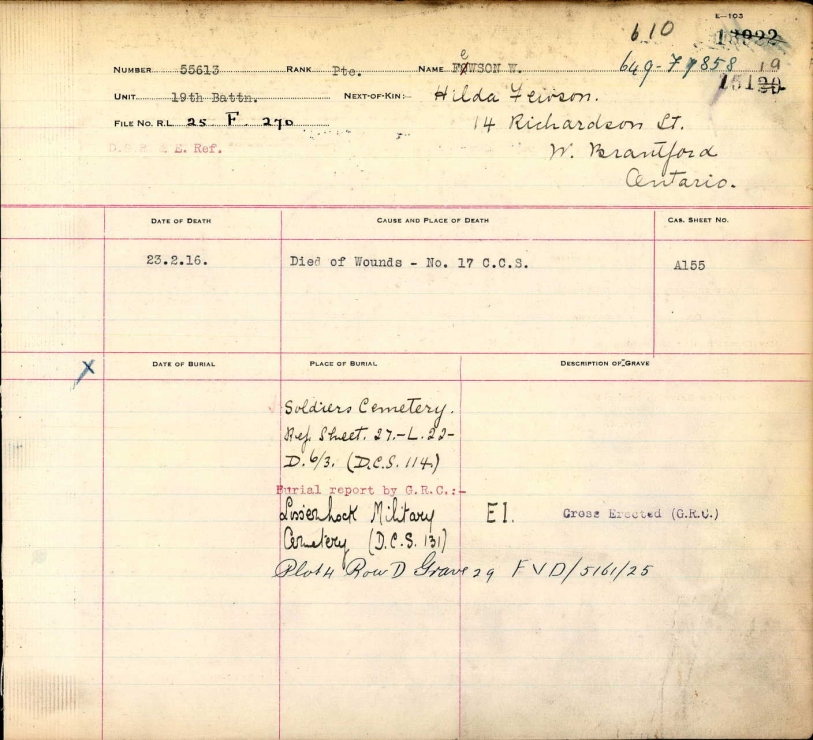 E-103
610 18922
NUMBER 55613 RANK Pte. NAME FeWSON W. 649-F 19
UNIT 19th Battn. NEXT-OF-KIN:- Hilda Fewson.
FILE No. R.L. 25 F. 270 14 Richardson St.
E. Ref. W. Brantford
Ontario.
DATE OF DEATH CAUSE AND PLACE OF DEATH CAS. SHEET NO.
23.2.16. Died of Wounds - No. 17 C.C.S. A155
X DATE OF BURIAL PLACE OF BURIAL DESCRIPTION OF GRAVE
Soldiers Cemetery.
Ref. Sheet. 27.-L.22-
D. 6/3. (D.C.S. 114.)
Burial report by G.R.C.:-
Lissenhock Military E1. Cross Erected (G.R.C.)
Cemetery (D.C.S. 131)
Plot 4 Row D Grave 29 FVD/5161/25